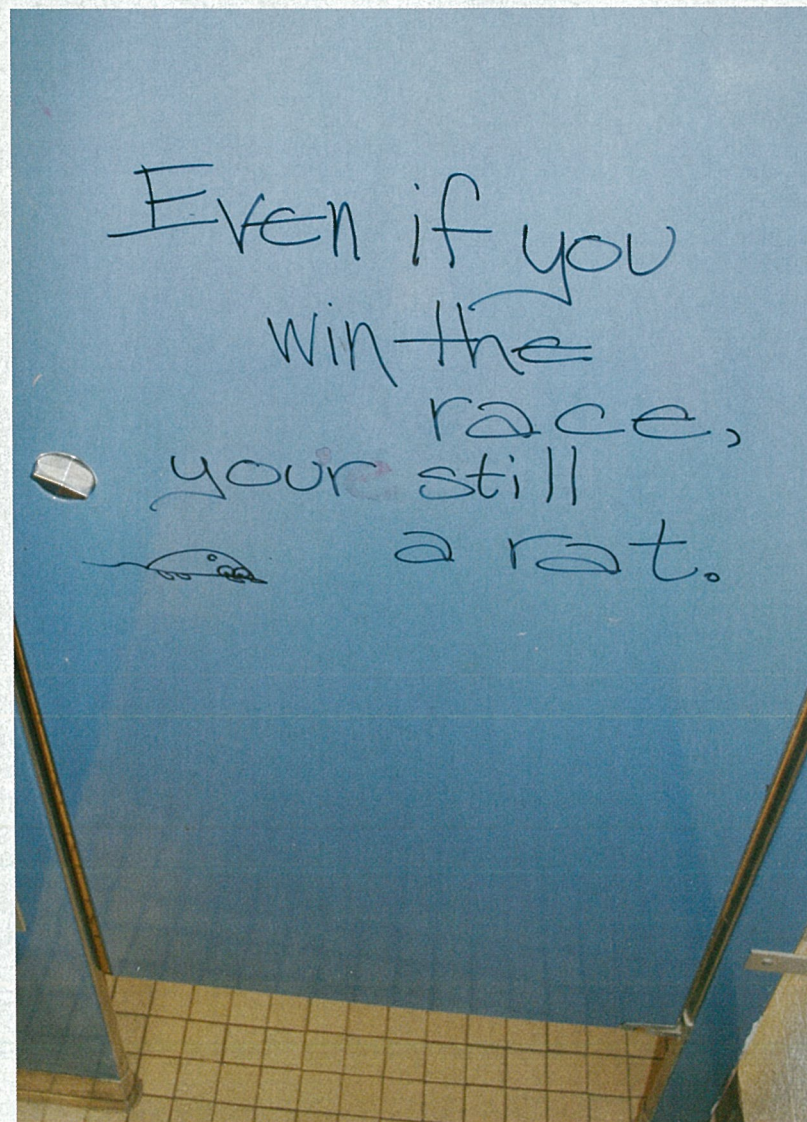 Even if you
win the
race,
your still
a rat.